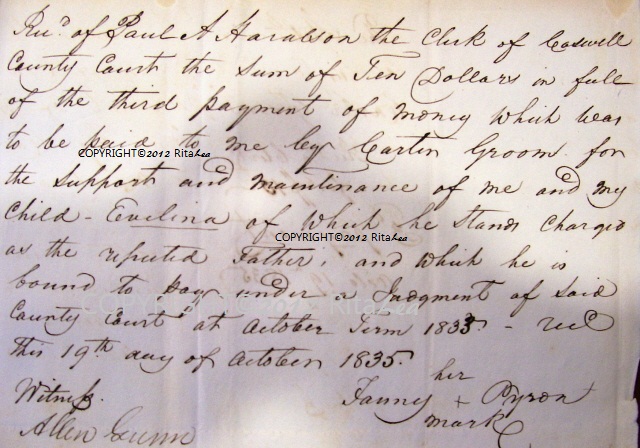 Recd of Paul A Haralson the Clerk of Caswell
County Court the Sum of Ten Dollars in full
of the third payment of money which was
to be paid to me by Carter Groom for
COPYRIGHT©2012 RitaLea
the Support and maintinance of me and my
Child - Evelina of which he stands Charged
COPYRIGHT©2012 RitaLea
as the reputed Father, and which he is
bound to pay under a Judgment of said
COPYRIGHT©2012 RitaLea
County Court at October Term 1833 - recd
this 19th day of October 1835.
Witness.
her
Fanny + Pyron
mark
Allen Gunn